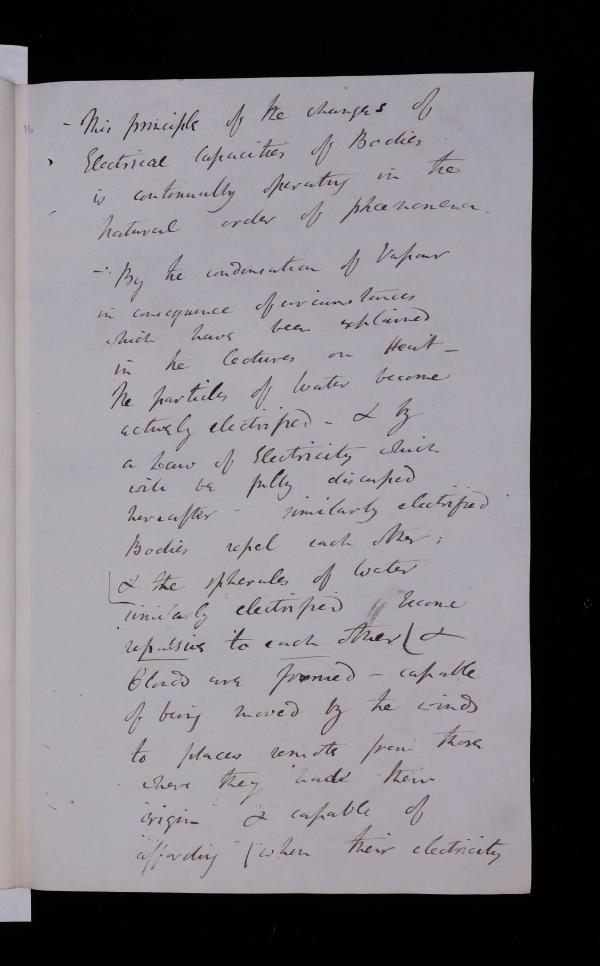 16
- This principle of the changes of
Electrical Capacities of Bodies
is continually operating in the
natural order of phænomena.
- By the condensation of Vapour
in consequence of circumstances
which have been explained
in the lectures on Heat -
the particles of water become
actively electrified - & by
a Law of Electricity which
will be fully discussed
hereafter - similarly electrified
Bodies repel each other;
& the spherules of water
similarly electrified become
repulsive to each other &
Clouds are formed - capable
of being moved by the winds
to places remote from those
where they had their
origin - & capable of
affording (when their electricity